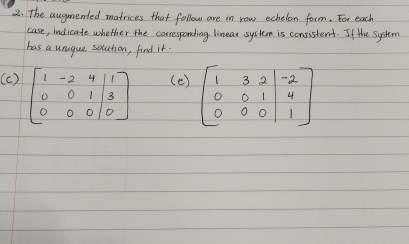 2. The augmented matrices that follow are in row echelon form. For each
case, indicate whether the corresponding linear system is consistent. If the system
has a unique solution, find it.
(c) [ 1 -2 4 | 1 ] (e) [ 1 3 2 | -2 ]
[ 0 0 1 | 3 ] [ 0 0 1 | 4 ]
[ 0 0 0 | 0 ] [ 0 0 0 | 1 ]